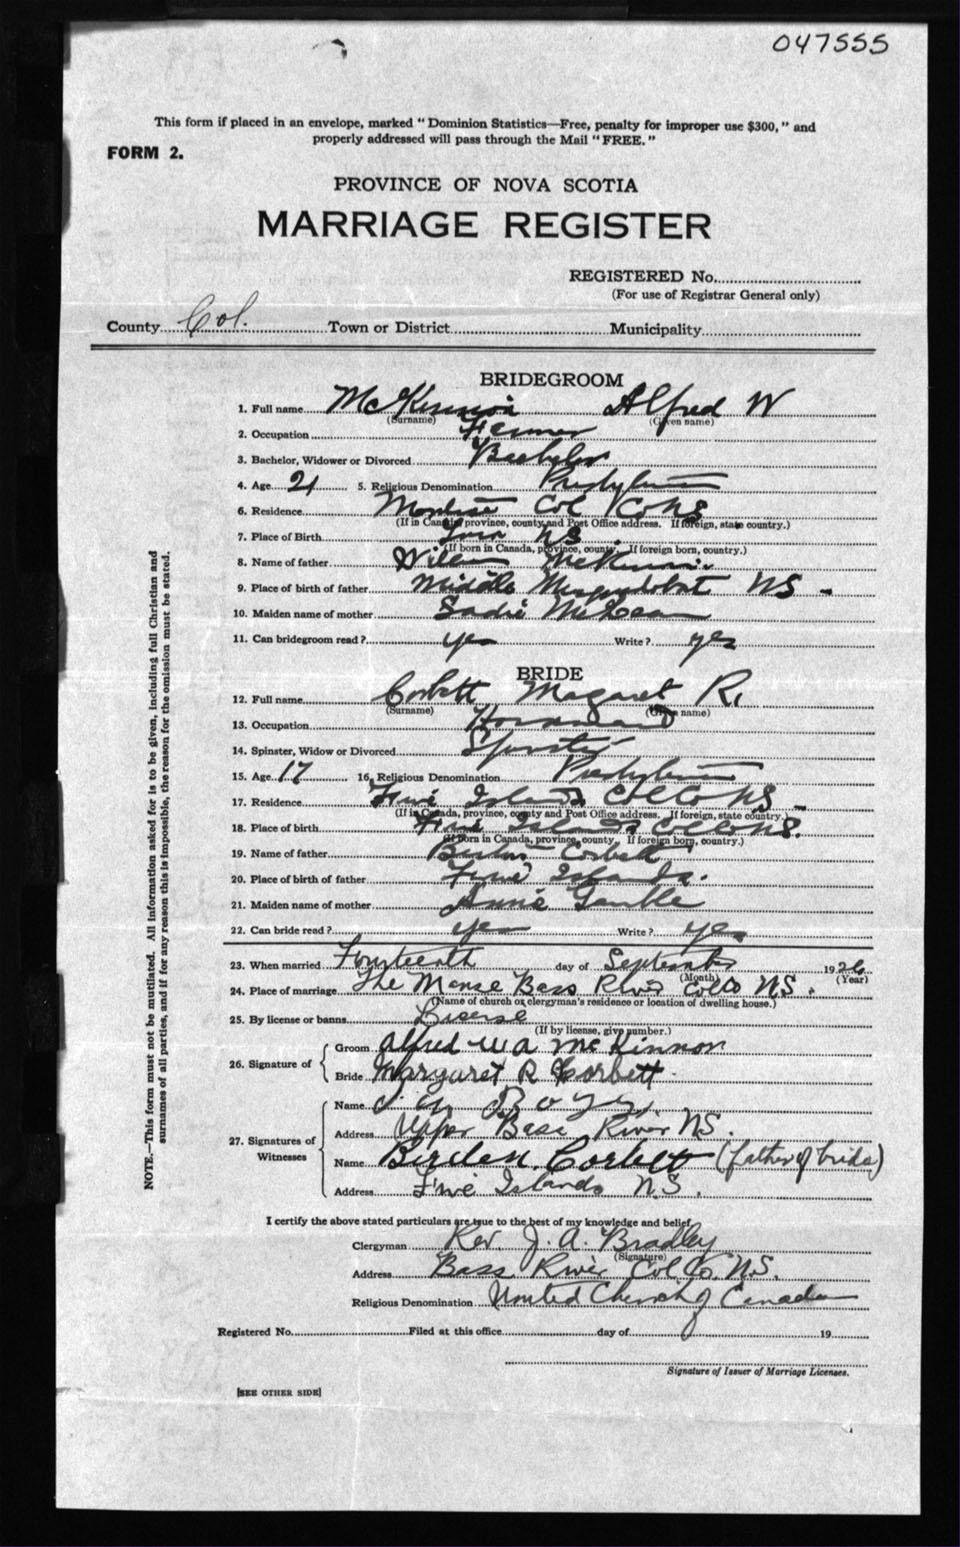 047555
This form if placed in an envelope, marked "Dominion Statistics—Free, penalty for improper use $300," and
properly addressed will pass through the Mail "FREE."
FORM 2.
PROVINCE OF NOVA SCOTIA
MARRIAGE REGISTER
REGISTERED No.
(For use of Registrar General only)
County Col. Town or District Municipality
BRIDEGROOM
1. Full name McKinnon Alfred W
(Surname) (Given name)
2. Occupation Farmer
3. Bachelor, Widower or Divorced Bachelor
4. Age 21 5. Religious Denomination Presbyterian
6. Residence Montrose Col Co NS
(If in Canada, province, county and Post Office address. If foreign, state country.)
7. Place of Birth NS
(If born in Canada, province, county. If foreign born, country.)
8. Name of father McKinnon
9. Place of birth of father Middle Musquodoboit NS -
10. Maiden name of mother Sadie McLean
11. Can bridegroom read? yes Write? yes
BRIDE
12. Full name Corbett Magaret R.
(Surname) (Given name)
13. Occupation
14. Spinster, Widow or Divorced Spinster
15. Age 17 16. Religious Denomination Presbyterian
17. Residence Five Islands Col Co NS -
(If in Canada, province, county and Post Office address. If foreign, state country.)
18. Place of birth Five Islands Col Co NS.
(If born in Canada, province, county. If foreign born, country.)
19. Name of father Corbett
20. Place of birth of father Five Islands.
21. Maiden name of mother Annie Gamble
22. Can bride read? yes Write? yes
23. When married Fourteenth day of September 1926
(Month) (Year)
24. Place of marriage The Manse Bass River Col Co N.S.
(Name of church or clergyman's residence or location of dwelling house.)
25. By license or banns License
(If by license, give number.)
26. Signature of
Groom Alfred W A McKinnon
Bride Margaret R Corbett
27. Signatures of
Witnesses
Name
Address Upper Bass River NS.
Name Birden Corbett (father of bride)
Address Five Islands N.S.
I certify the above stated particulars are true to the best of my knowledge and belief.
Clergyman Rev. J. A. Bradley
(Signature)
Address Bass River Col Co. N.S.
Religious Denomination United Church of Canada
Registered No. Filed at this office day of 19
Signature of Issuer of Marriage Licenses.
[SEE OTHER SIDE]
NOTE.—This form must not be mutilated. All information asked for is to be given, including full Christian and
surnames of all parties, and if for any reason this is impossible, the reason for the omission must be stated.